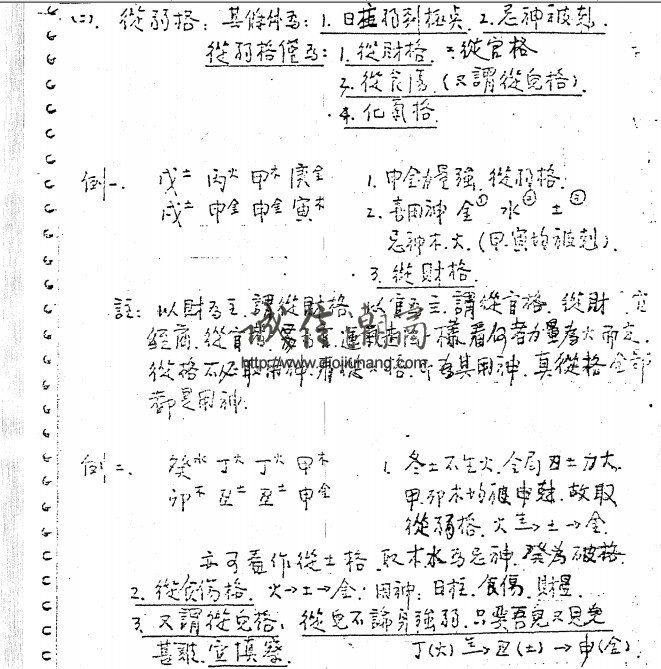 (二) 從弱格：其條件為：1. 日柱弱到極点 2. 忌神被剋.
從弱格僅為：1. 從財格 2. 從官格
3. 從食傷 (又謂從兒格)
4. 化氣格
例一. 戊土 丙火 甲木 庚金 1. 申金力量強 從弱格
戌土 申金 申金 寅木 2. 喜用神 金① 水② 土③
忌神木.火.(甲.寅均被剋).
3. 從財格
註：以財為主.謂從財格.以官為主.謂從官格.從財
經商.從官 看何者力量
從格不必取用神 為其用神.真從格全部
都是用神.
誠信潮
http://www.diojiumang.com
例二. 癸水 丁火 丁火 甲木 1. 冬土不生火.全局丑土力大
卯木 丑土 丑土 申金 甲.卯木均被申剋.故取
從弱格.火→土→金.
亦可看作從土格.取木水為忌神.癸為破格.
2. 從食傷格.火→土→金：用神：日柱.食傷.財星
3. 又謂從兒格：從兒不論身強弱.只要吾兒又見兒
甚難.宜慎察. 丁(火)→丑(土)→申(金).